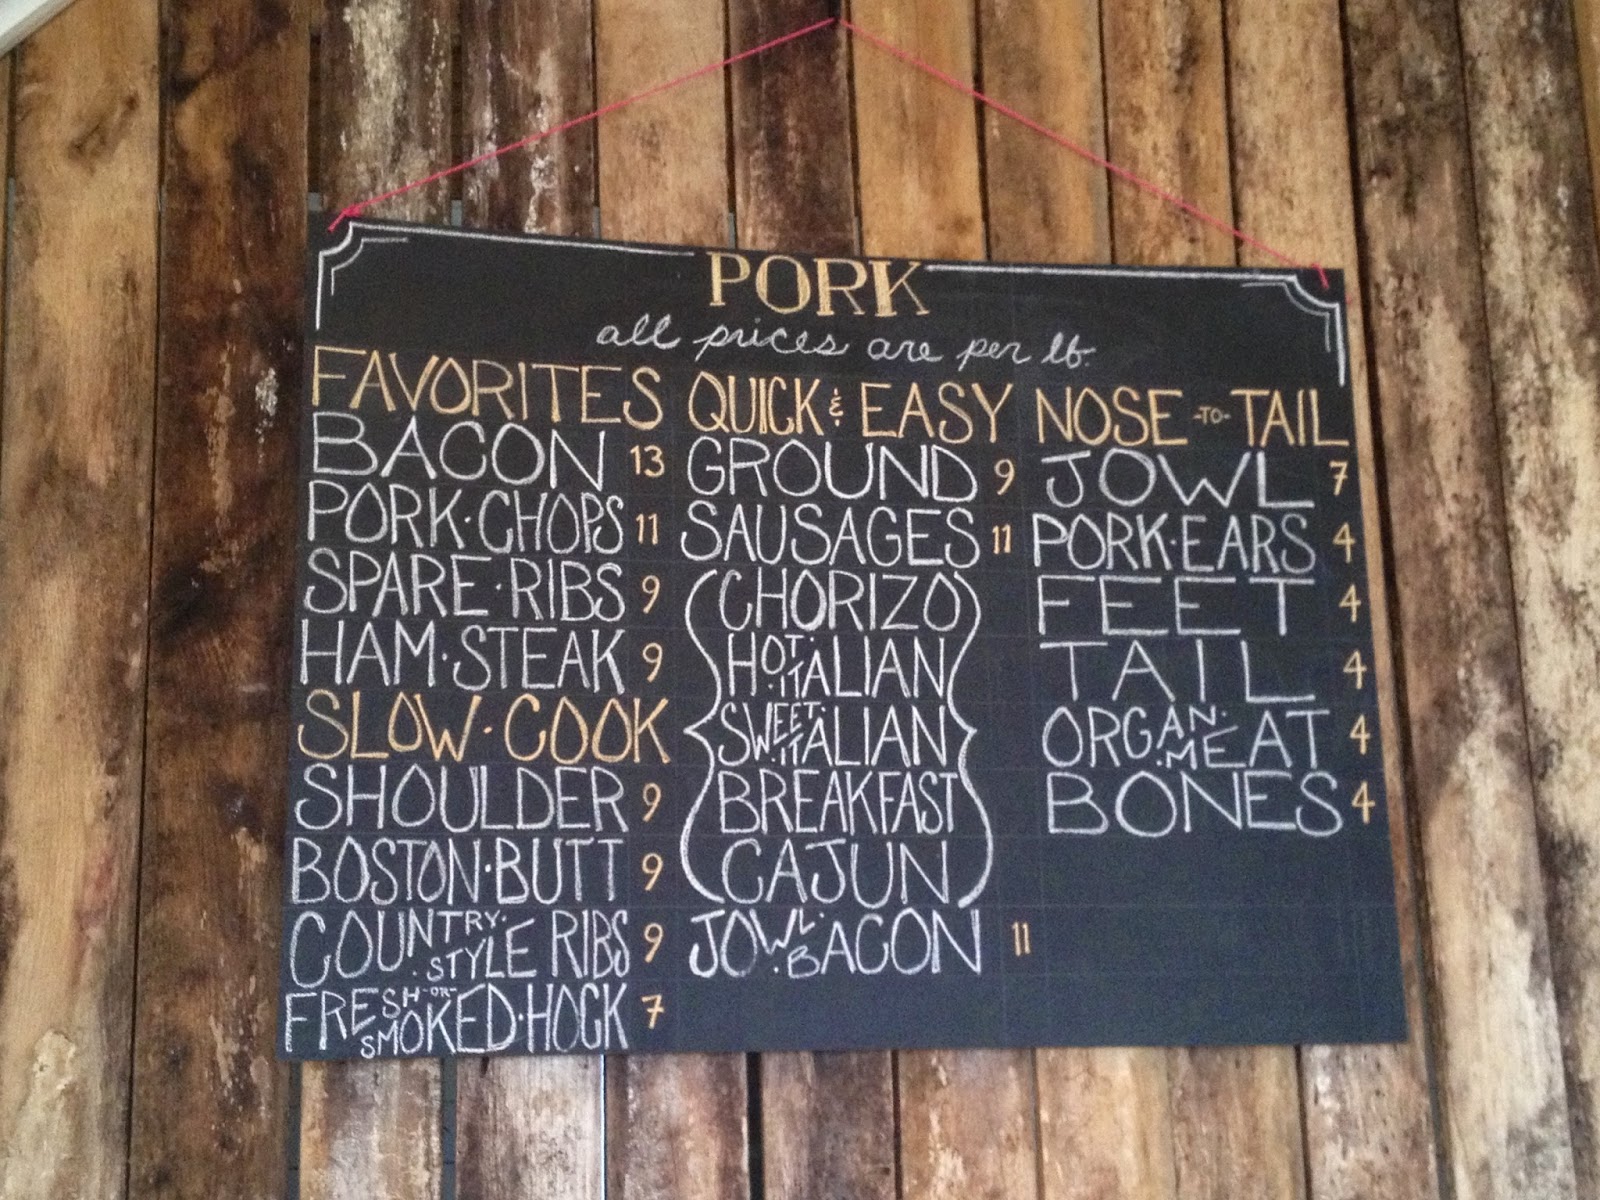 PORK
all prices are per lb.
FAVORITES
BACON 13
PORK·CHOPS 11
SPARE·RIBS 9
HAM·STEAK 9
SLOW·COOK
SHOULDER 9
BOSTON·BUTT 9
COUNTRY·STYLE RIBS 9
FRESH-OR-SMOKED·HOCK 7
QUICK & EASY
GROUND 9
SAUSAGES 11
(CHORIZO)
HOT·ITALIAN
SWEET·ITALIAN
BREAKFAST
CAJUN
JOWL·BACON 11
NOSE-TO-TAIL
JOWL 7
PORK·EARS 4
FEET 4
TAIL 4
ORGAN·MEAT 4
BONES 4